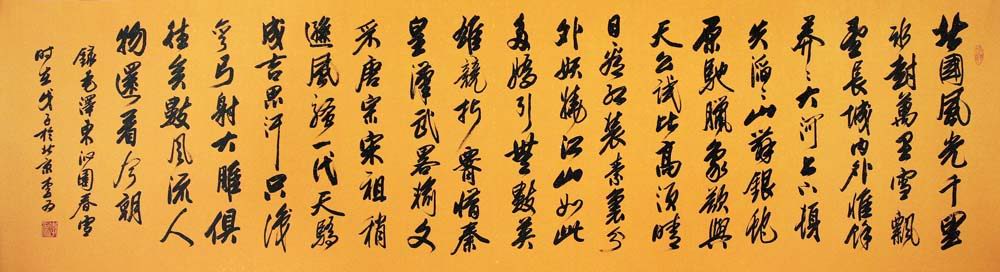 北國風光千里
冰封萬里雪飄
望長城内外惟餘
莽々大河上下頓
失滔々山舞銀蛇
原馳臘象欲與
天公試比高須晴
日看紅裝素裹分
外妖嬈江山如此
多嬌引無數英
雄競折腰惜秦
皇漢武略輸文
采唐宗宋祖稍
遜風騷一代天驕
成吉思汗只識
彎弓射大雕俱
往矣數風流人
物還看今朝
錄毛澤東沁園春雪
时在戊子於北京李